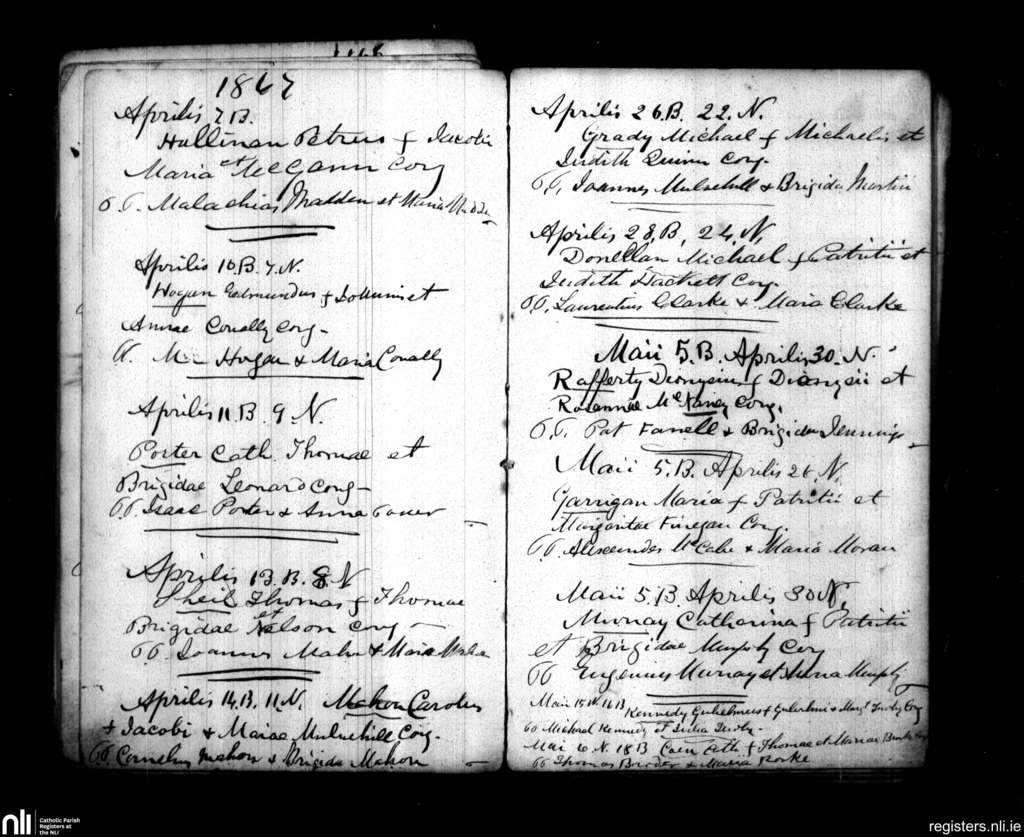 1867
Aprilis 7 B.
Hallinan Petrus f Jacobi
et
Maria McGann Conj
P.P. Malachias Madden et Maria Madden
Aprilis 10. B. 7. N.
Hogan Edmundus f et
Annae Conally Conj-
P. Hogan & Maria Conally
Aprilis 11. B 9. N.
Porter Cath. Thomae et
Brigidae Leonard Conj-
P.P. Isaac Porter & Anna
Aprilis 13. B. 8. N
Sheil Thomas f Thomae
et
Brigidae Nelson Conj-
P.P. Joannes & Maria
Aprilis 14. B. 11. N. Mahon Carolus
f Jacobi & Mariae Mulvehill Conj-
P.P. Cornelius Mahon & Brigida Mahon
Aprilis 26. B. 22. N.
Grady Michael f Michaelis et
Judith Quinn Conj-
P.P. Joannes Mulvehill & Brigida Martin
Aprilis 28. B, 24. N,
Donellan Michael f Patritii et
Judith Hackett Conj-
P.P. Laurentius Clarke & Maria Clarke
Maii 5. B. Aprilis 30. N.
Rafferty Dionysius f Dionysii et
Rosannae Conj.
P.P. Pat Farrell & Brigida Jennings
Maii 5. B. Aprilis 26. N.
Garrigan Maria f Patritii et
Margaritae Finegan Conj.
P.P. Alexander McCabe & Maria Moran
Maii 5. B. Aprilis 30 N.
Murray Catharina f Patritii
et Brigidae Murphy Conj
P.P. Eugenius Murray et Anna Murphy
Maii 15 N. 16 B
Kennedy Gulielmus f Gulielmi & Marg't Conj
P.P. Michael Kennedy et
Maii N. 18 B Cath f Thomae et Mariae
P.P. Thomas & Maria Rorke
nli
Catholic Parish
Registers at
the NLI
registers.nli.ie